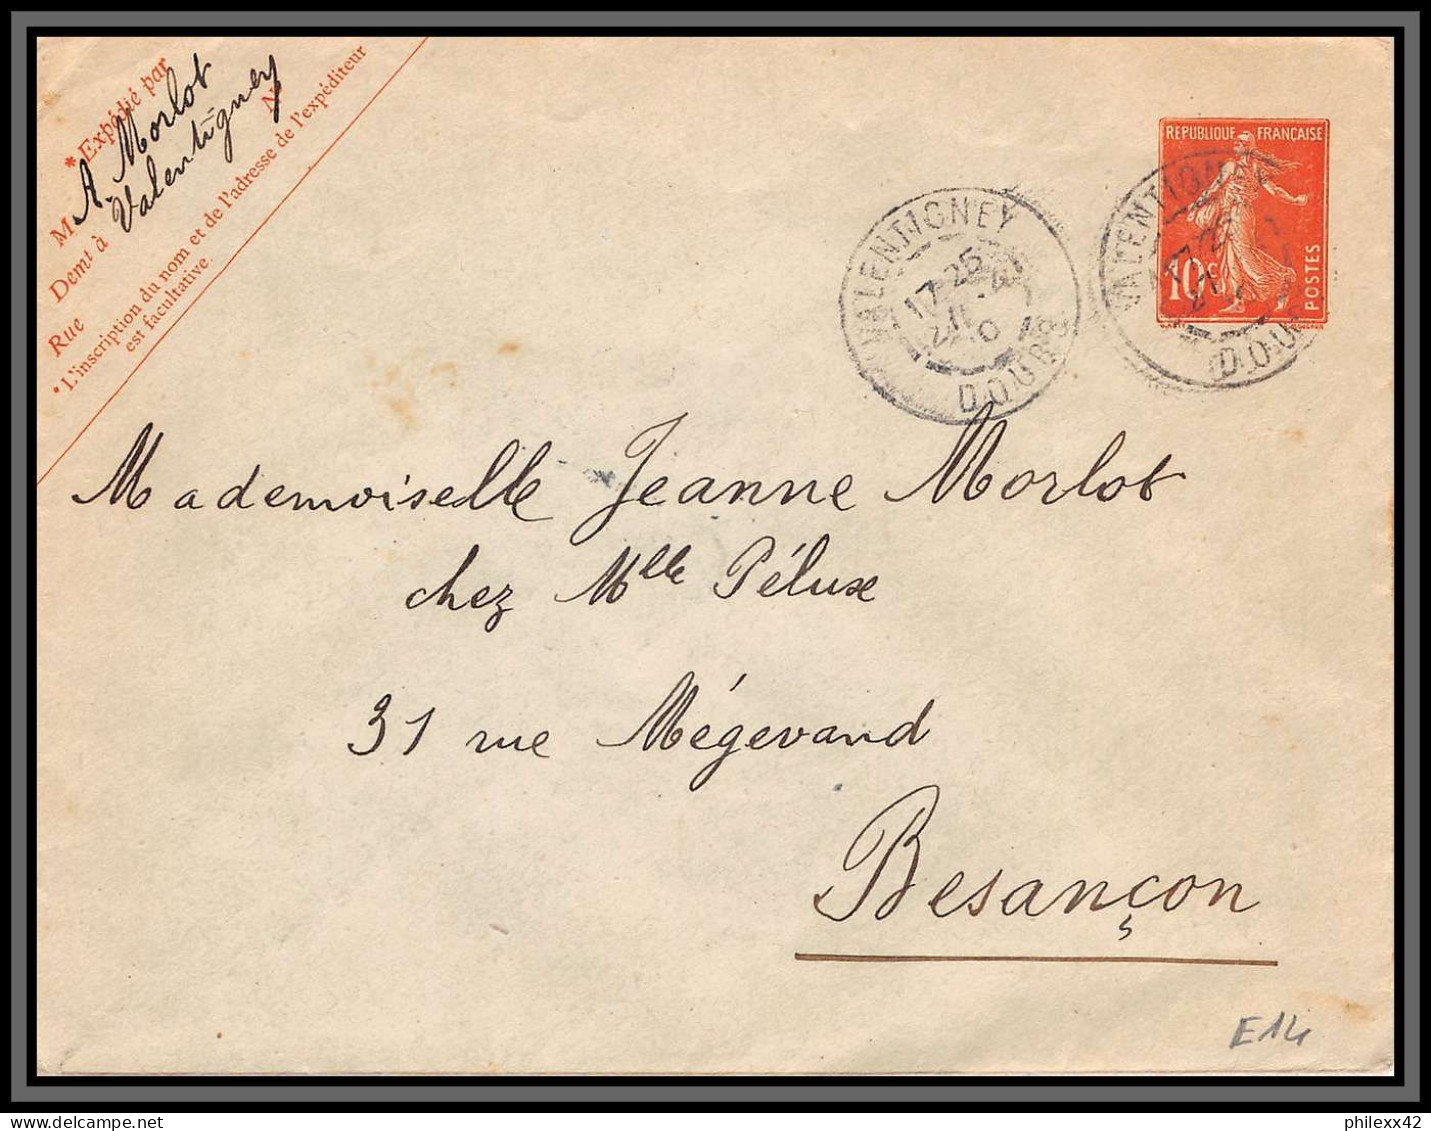 * Expédié par
M A. Morlot N
Demt à Valentigney
Rue
* L'inscription du nom et de l'adresse de l'expéditeur
est facultative.
RÉPUBLIQUE FRANÇAISE
10c
POSTES
VALENTIGNEY
17-25
DOUBS
VALENTIGNEY
17-25
DOUBS
Mademoiselle Jeanne Morlot
chez Mlle Péluxe
31 rue Mégevand
Besançon
E14
philexx42